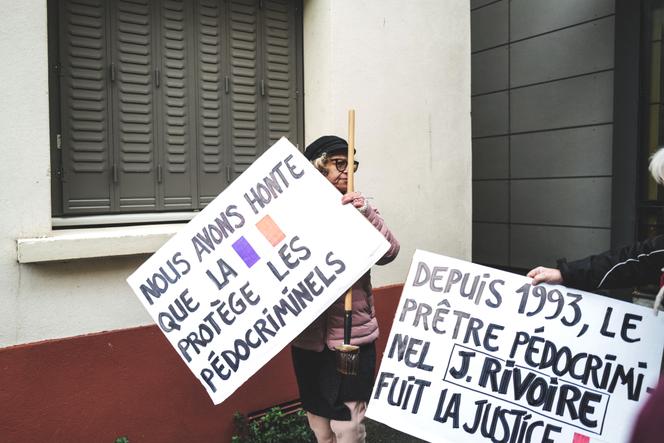 NOUS AVONS HONTE
QUE LA
PROTÈGE LES
PÉDOCRIMINELS
DEPUIS 1993, LE
PRÊTRE PÉDOCRIMI-
NEL J. RIVOIRE
FUIT LA JUSTICE